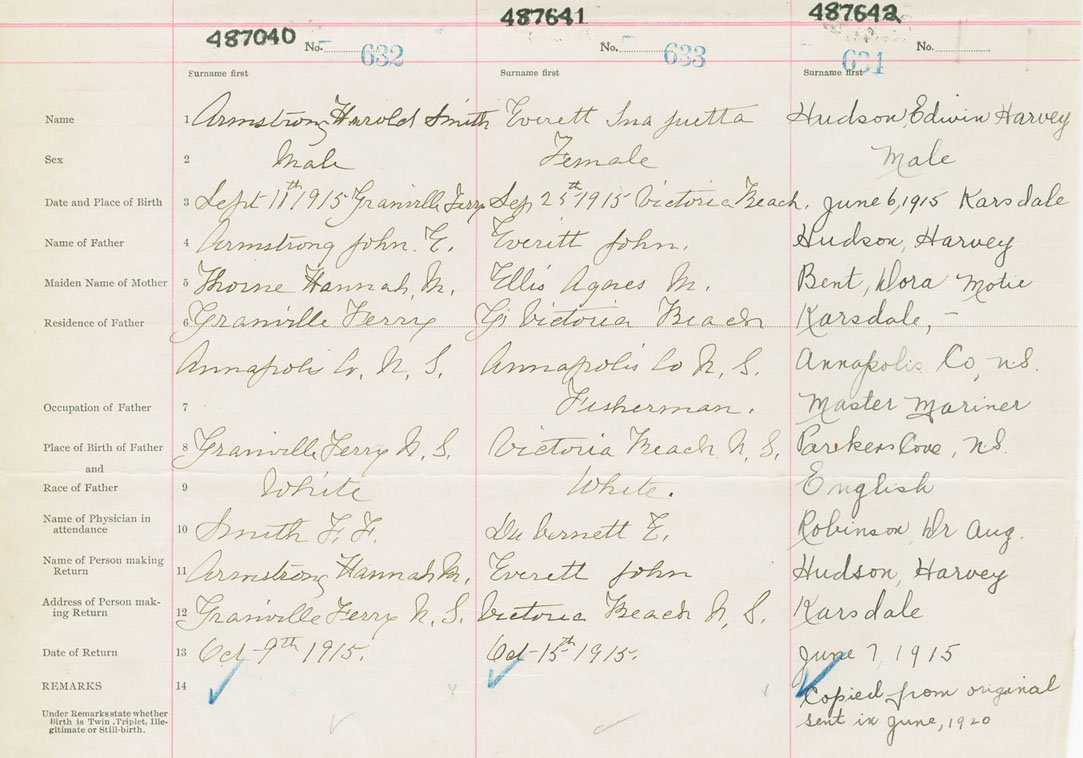 487040 487641 487642
No. 632 No. 633 634 No.
Surname first Surname first Surname first
Name 1 Armstrong Harold Smith Everett Ina Juetta Hudson, Edwin Harvey
Sex 2 Male Female Male
Date and Place of Birth 3 Sept 11th 1915 Granville Ferry Sep 25th 1915 Victoria Beach. June 6, 1915 Karsdale
Name of Father 4 Armstrong John. E. Everitt John. Hudson, Harvey
Maiden Name of Mother 5 Thorne Hannah, M. Ellis Agnes M. Bent, Dora Motie
Residence of Father 6 Granville Ferry Victoria Beach Karsdale, -
Annapolis Co, N, S. Annapolis Co N, S. Annapolis Co, N.S.
Occupation of Father 7 Fisherman. Master Mariner
Place of Birth of Father 8 Granville Ferry N. S. Victoria Beach N, S. Parkers Cove, N.S.
and
Race of Father 9 White White. English
Name of Physician in
attendance 10 Smith F. F. E. Robinson, Dr Aug.
Name of Person making
Return 11 Armstrong Hannah M. Everett John Hudson, Harvey
Address of Person mak-
ing Return 12 Granville Ferry N. S. Victoria Beach N, S. Karsdale
Date of Return 13 Oct 9th 1915. Oct 15th 1915. June 7, 1915
REMARKS 14 Copied from original
Under Remarks state whether
Birth is Twin, Triplet, Ille-
gitimate or Still-birth.
sent in June, 1920